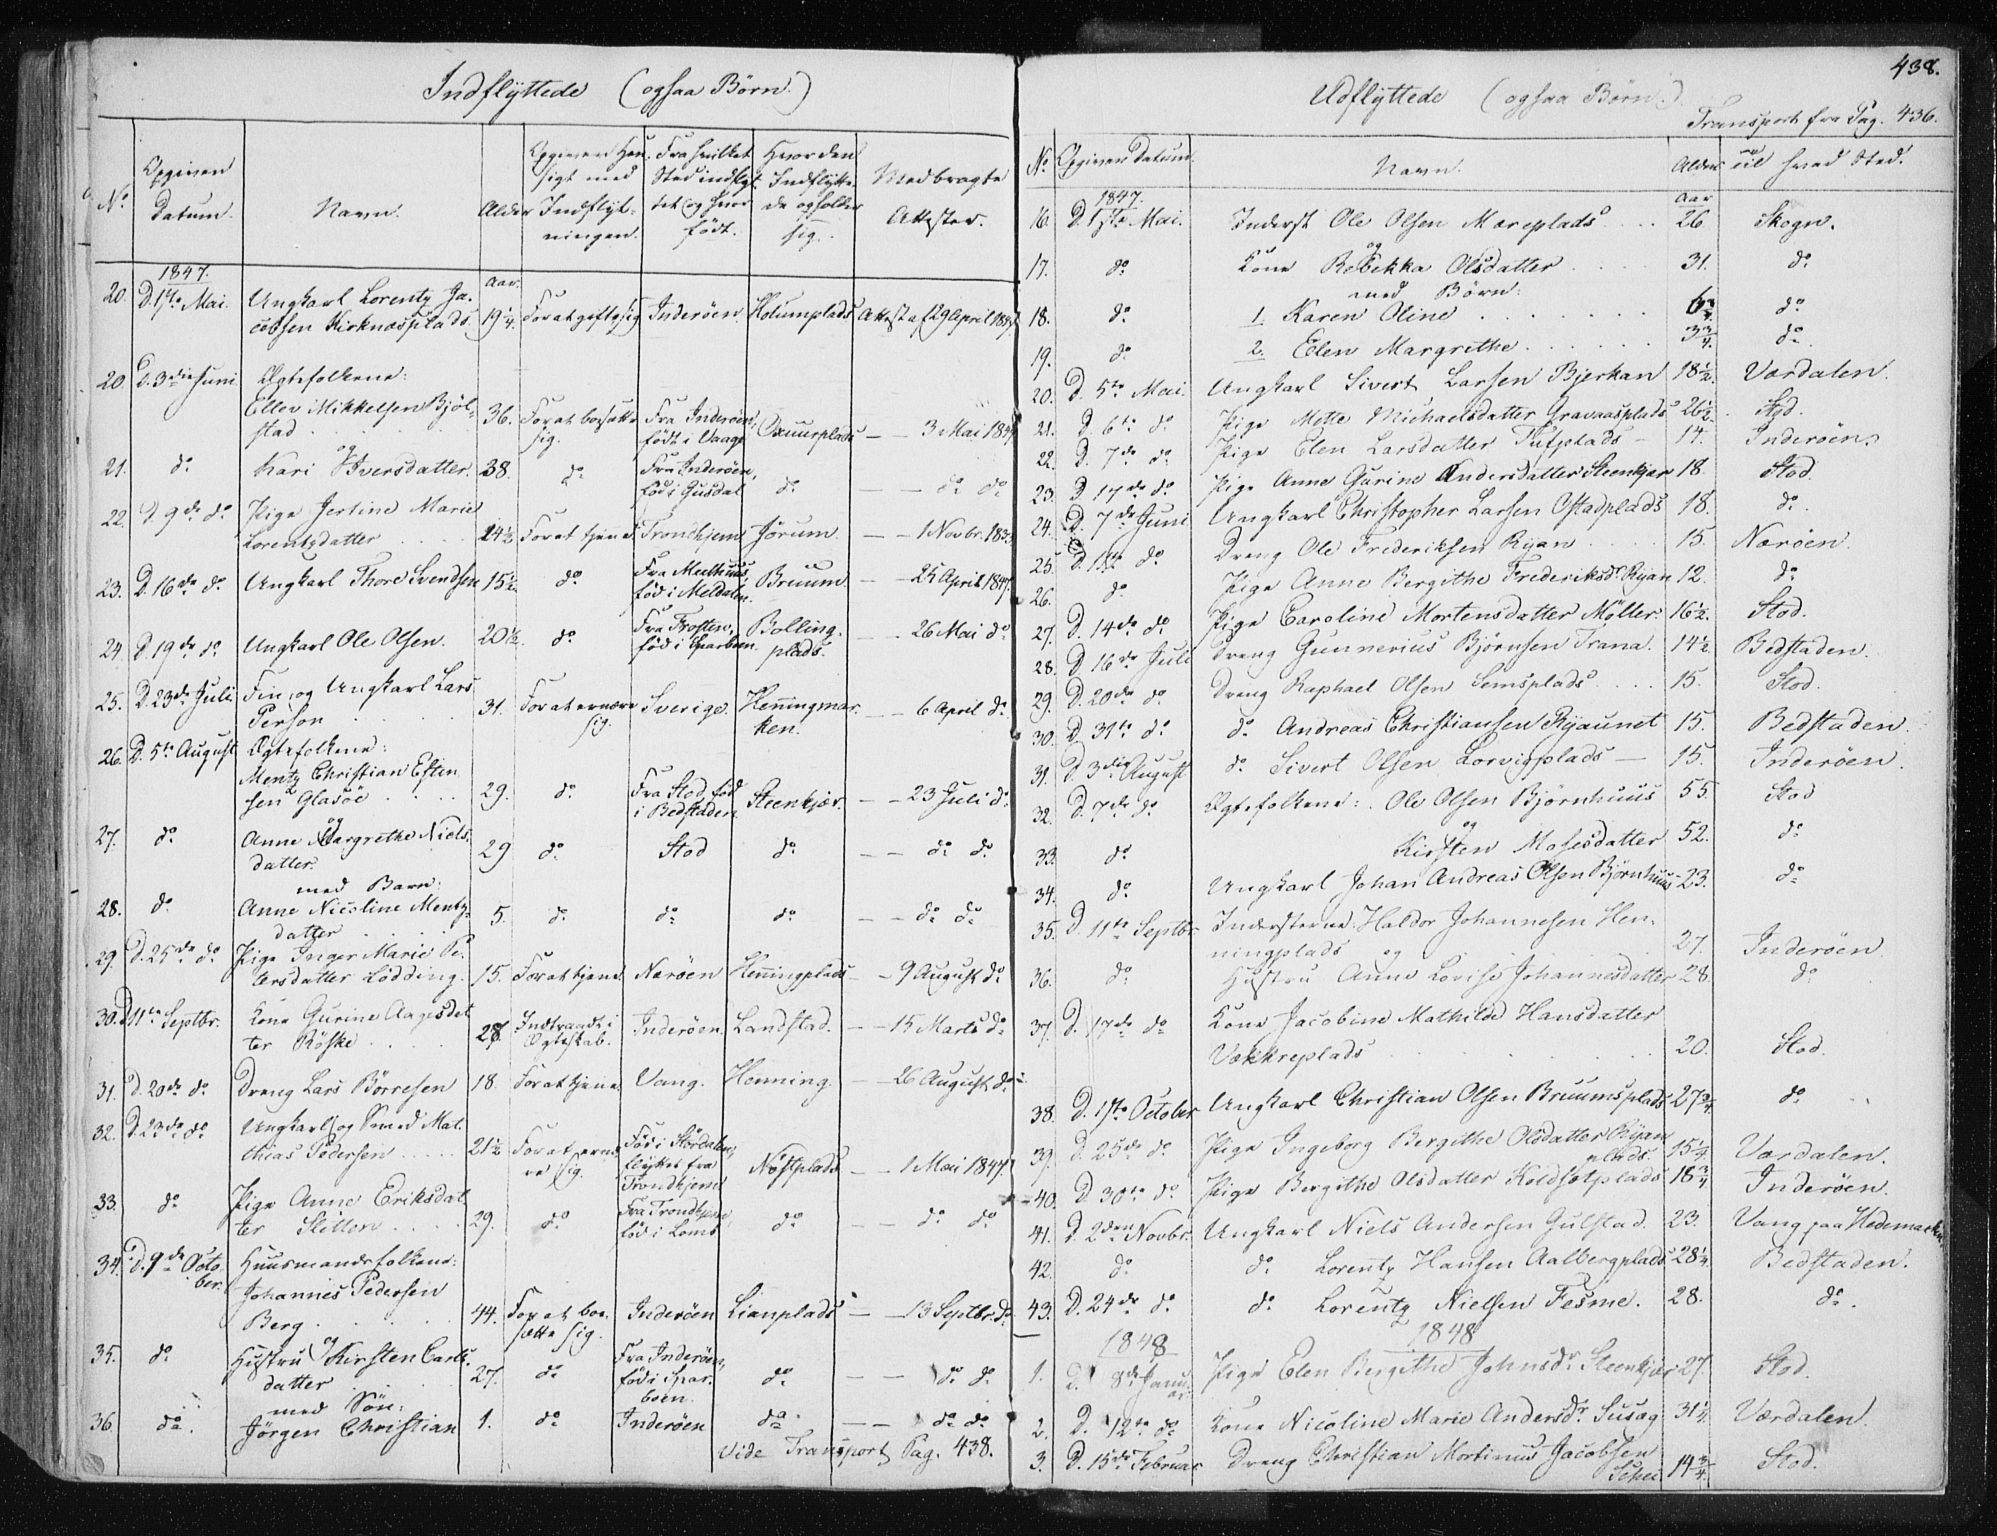 Indflyttede (ogsaa Børn.)
No.
Opgiven Datum.
Navn.
Alder
Opgiven Hensigt med Indflytningen.
Fra hvilket Sted indflyttet og hvor født.
Hvor den Indflyttede opholder sig.
Medbragte Attester.
1847. Aar.
20. D. 1ste Mai. Ungkarl Lorentz Ja-
cobsen Kirknæsplads 19 1/4. For at gifte sig Inderøen. Holumplads Attest af 29 April 1847
20. D. 3die Juni Ægtefolkene:
Ellev Mikkelsen Bjøl-
stad . . . 36. For at bosætte sig. Fra Inderöen, födt i Vaage — — 3 Mai 1847
og
21. do Kari Iversdatter. 38. do Fra Inderöen, föd i Gusdal do — — do do
22. D. 9de do Pige Jertine Marie
Lorentzdatter . . . 24 1/2 For at tjene Trondhjem Jörum — — 1 Novbr. 1833
23. D. 16de do Ungkarl Thore Svendsen 15 1/2 do Fra Melhuus föd i Meldalen. Bruum — — 25 April 1847.
24. D. 19de do Ungkarl Ole Olsen. 20 1/2 do Fra Frosten, föd i Sparboen. Bollingplads. — — 26 Mai do
25. D. 23de Juli Fin og Ungkarl Lars
Person . . . 31. For at ernære sig. Sverige. Henningmarken. — — 6 April do
26. D. 5te August Ægtefolkene:
Mentz Christian Esten-
sen Glasöe . . . 29. do Fra Stod, föd i Bedstaden. Steenkjær. — — 23 Juli do
og
27. do Anne Margrethe Niels-
datter. 29 do Stod do — — do do
med Barn:
28. do Anne Nicoline Mentz-
datter . . . 5. do do do — — do do
29. D. 25de do Pige Inger Marie Pe-
dersdatter Lödding. 15. For at tjene Nærøen Henningplads — — 9 August do
30. D. 11te Septbr. Kone Gurine Aagesdat-
ter Röske . . . 28. Indtraadt i Ægteskab. Inderøen Landstad. — — 15 Marts do
31. D. 20de do Dreng Lars Börresen 18. For at tjene Vang. Henning. — — 26 August do
32. D. 23de do Ungkarl og Smed Mat-
thias Pedersen . . . 21 1/2 For at ernære sig. Föd i Stördalen, flyttet fra Trondhjem Nöstplads — — 1 Mai 1847.
33. do Pige Anne Eriksdat-
ter Sletten . . . 29. do Fra Trondhjem, föd i Loms do — — do do
34. D. 9de October Huusmandsfolkene:
Johannes Pedersen
Berg . . . 44. For at bosætte sig. Inderøen Lianplads — — 13 Septbr. do
og
35. do Hustru Kirsten Carls-
datter . . . 27. do Fra Inderöen, föd i Sparboen. do — — do do
med Sön:
36. do. Jörgen Christian 1. do Inderöen do — — do do
Vide Transport Pag. 438.
438.
Udflyttede (ogsaa Børn.)
Transport fra Pag. 436.
No. Opgiven Datum. Navn. Alder til hvad Sted.
1847. Aar
16. D. 1ste Mai. Inderst Ole Olsen Mæreplads . . . 26. Skogn.
og
17. do Kone Rebekka Olsdatter . . . 31. do
med Børn:
18. do 1. Karen Oline . . . 6 3/4 do
19. do 2. Elen Margrethe . . . 3 3/4. do.
20. D. 5te Mai Ungkarl Sivert Larsen Bjerkan 18 1/2. Værdalen.
21. D. 6te do Pige Mette Michaelsdatter Gravaasplads 26 1/2. Stod.
22. D. 7de do Pige Elen Larsdatter Tufplads — 14. Inderöen.
23. D. 17de do Pige Anne Gurine Andersdatter Steenkjær 18. Stod.
24. D. 7de Juni Ungkarl Christopher Larsen Ofstadplads 18. do.
25. D. 11te do Dreng Ole Frederiksen Ryan . . . 15. Nærøen.
26. do Pige Anne Bergithe Frederiksdr. Ryan 12. do
27. D. 14de do Pige Caroline Mortensdatter Møller. 16 1/2. Stod.
28. D. 16de Juli Dreng Gunnerius Bjørnsen Trana. 14 1/2 Bedstaden.
29. D. 20de do Dreng Raphael Olsen Semsplads . . . 15. Stod.
30. D. 31te do do Andreas Christiansen Ryaunet 15. Bedstaden.
31. D. 3die August do Sivert Olsen Lorvigplads — 15. Inderøen.
32. D. 7de do Ægtefolkene: Ole Olsen Bjørnhuus 55. Stod
og
33. do Kirsten Mosesdatter 52. do
34. do Ungkarl Johan Andreas Olsen Bjørnhuus 23. do
35. D. 11te Septbr. Indersterne: Haldor Johannesen Hen-
ningplads og 27. Inderöen
36. do Hustru Anne Lovise Johannesdatter 28. do
37. D. 17de do Kone Jacobine Mathilde Hansdatter
Vækkreplads . . . 20. Stod.
38. D. 1ste October Ungkarl Christian Olsen Bruumsplads 27 3/4 do
39. D. 25de do Pige Ingeborg Bergithe Olsdatter Ryan
plads. 15 1/4 Værdalen.
40. D. 30te do Pige Bergithe Olsdatter Koldsætplads 18 3/4 Inderöen.
41. D. 2den Novbr. Ungkarl Niels Andersen Gulstad. 23. Vang paa Hedemarken
42. do do Lorentz Hansen Aalbergplads 28 1/4 Bedstaden.
43. D. 24de do do Lorentz Nielsen Fesme. 28. do.
1848 1848
1. D. 8de Januar Pige Elen Bergithe Johnsdr. Steenkjær 27. Stod.
2. D. 12te do Kone Nicoline Marie Andersdr. Susag 31 1/4 Værdalen.
3. D. 15de Februar Dreng Christian Mortinus Jacobsen
Schei 14 3/4. Stod.